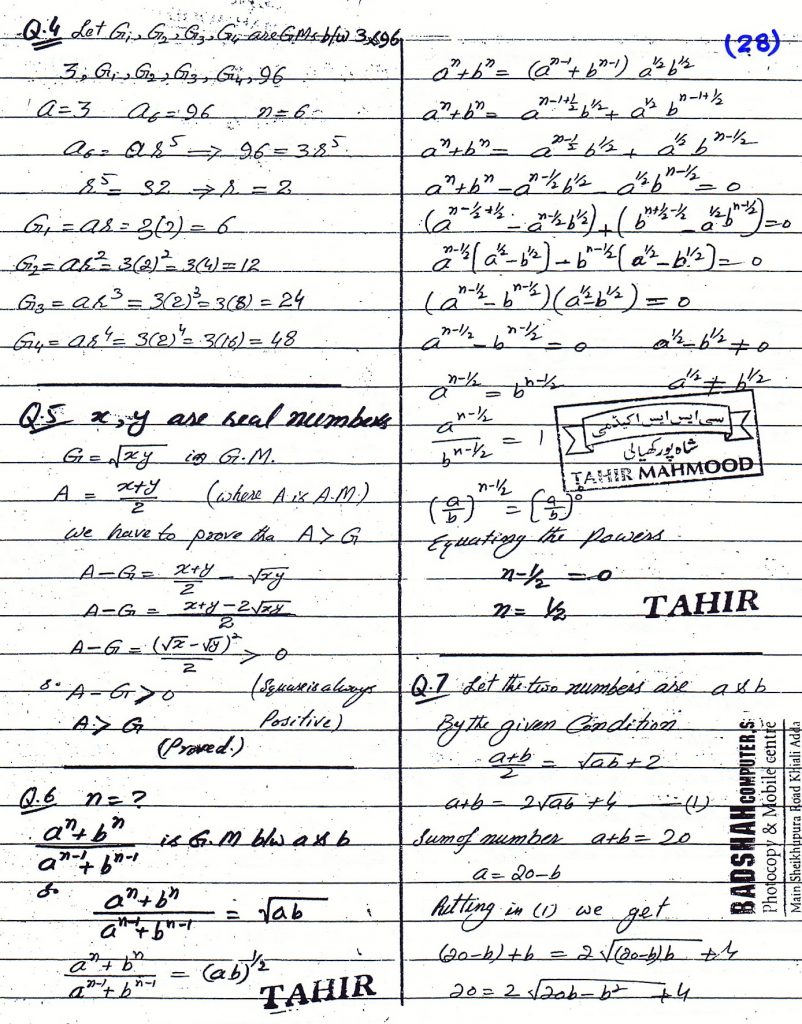 Q.4 Let G₁, G₂, G₃, G₄ are G.Ms b/w 3 & 96
3, G₁, G₂, G₃, G₄, 96
a = 3 a₆ = 96 n = 6
a₆ = ar⁵ ⟹ 96 = 3.r⁵
r⁵ = 32 → r = 2
G₁ = ar = 3(2) = 6
G₂ = ar² = 3(2)² = 3(4) = 12
G₃ = ar³ = 3(2)³ = 3(8) = 24
G₄ = ar⁴ = 3(2)⁴ = 3(16) = 48
Q.5 x, y are real numbers
G = √xy is G.M.
A = (x+y)/2 (where A is A.M.)
we have to prove tha A > G
A – G = (x+y)/2 – √xy
A – G = (x+y – 2√xy)/2
A – G = (√x – √y)²/2 > 0
So A – G > 0 (Square is always
A > G Positive)
(Proved.)
Q.6 n = ?
(aⁿ + bⁿ)/(aⁿ⁻¹ + bⁿ⁻¹) is G.M b/w a & b
So (aⁿ + bⁿ)/(aⁿ⁻¹ + bⁿ⁻¹) = √ab
(aⁿ + bⁿ)/(aⁿ⁻¹ + bⁿ⁻¹) = (ab)^½
TAHIR
(28)
aⁿ + bⁿ = (aⁿ⁻¹ + bⁿ⁻¹) a^½ b^½
aⁿ + bⁿ = a^(n-1+½) b^½ + a^½ b^(n-1+½)
aⁿ + bⁿ = a^(n-½) b^½ + a^½ b^(n-½)
aⁿ + bⁿ – a^(n-½) b^½ – a^½ b^(n-½) = 0
(a^(n-½+½) – a^(n-½) b^½) + (b^(n+½-½) – a^½ b^(n-½)) = 0
a^(n-½) (a^½ – b^½) – b^(n-½) (a^½ – b^½) = 0
(a^(n-½) – b^(n-½)) (a^½ – b^½) = 0
a^(n-½) – b^(n-½) = 0 a^½ – b^½ ≠ 0
a^(n-½) = b^(n-½) a^½ ≠ b^½
a^(n-½)/b^(n-½) = 1
سی ایس ایس اکیڈمی
شاہ پور کھیالی
TAHIR MAHMOOD
(a/b)^(n-½) = (a/b)⁰
Equating the Powers
n-½ = 0
n = ½
TAHIR
Q.7 Let the two numbers are a & b
By the given Condition
(a+b)/2 = √ab + 2
a+b = 2√ab + 4 ---- (1)
Sum of number a+b = 20
a = 20-b
Putting in (1) we get
(20-b)+b = 2√(20-b)b + 4
20 = 2√20b-b² + 4
BADSHAH COMPUTER,S
Photocopy & Mobile centre
Main Sheikhupura Road Khiali Adda